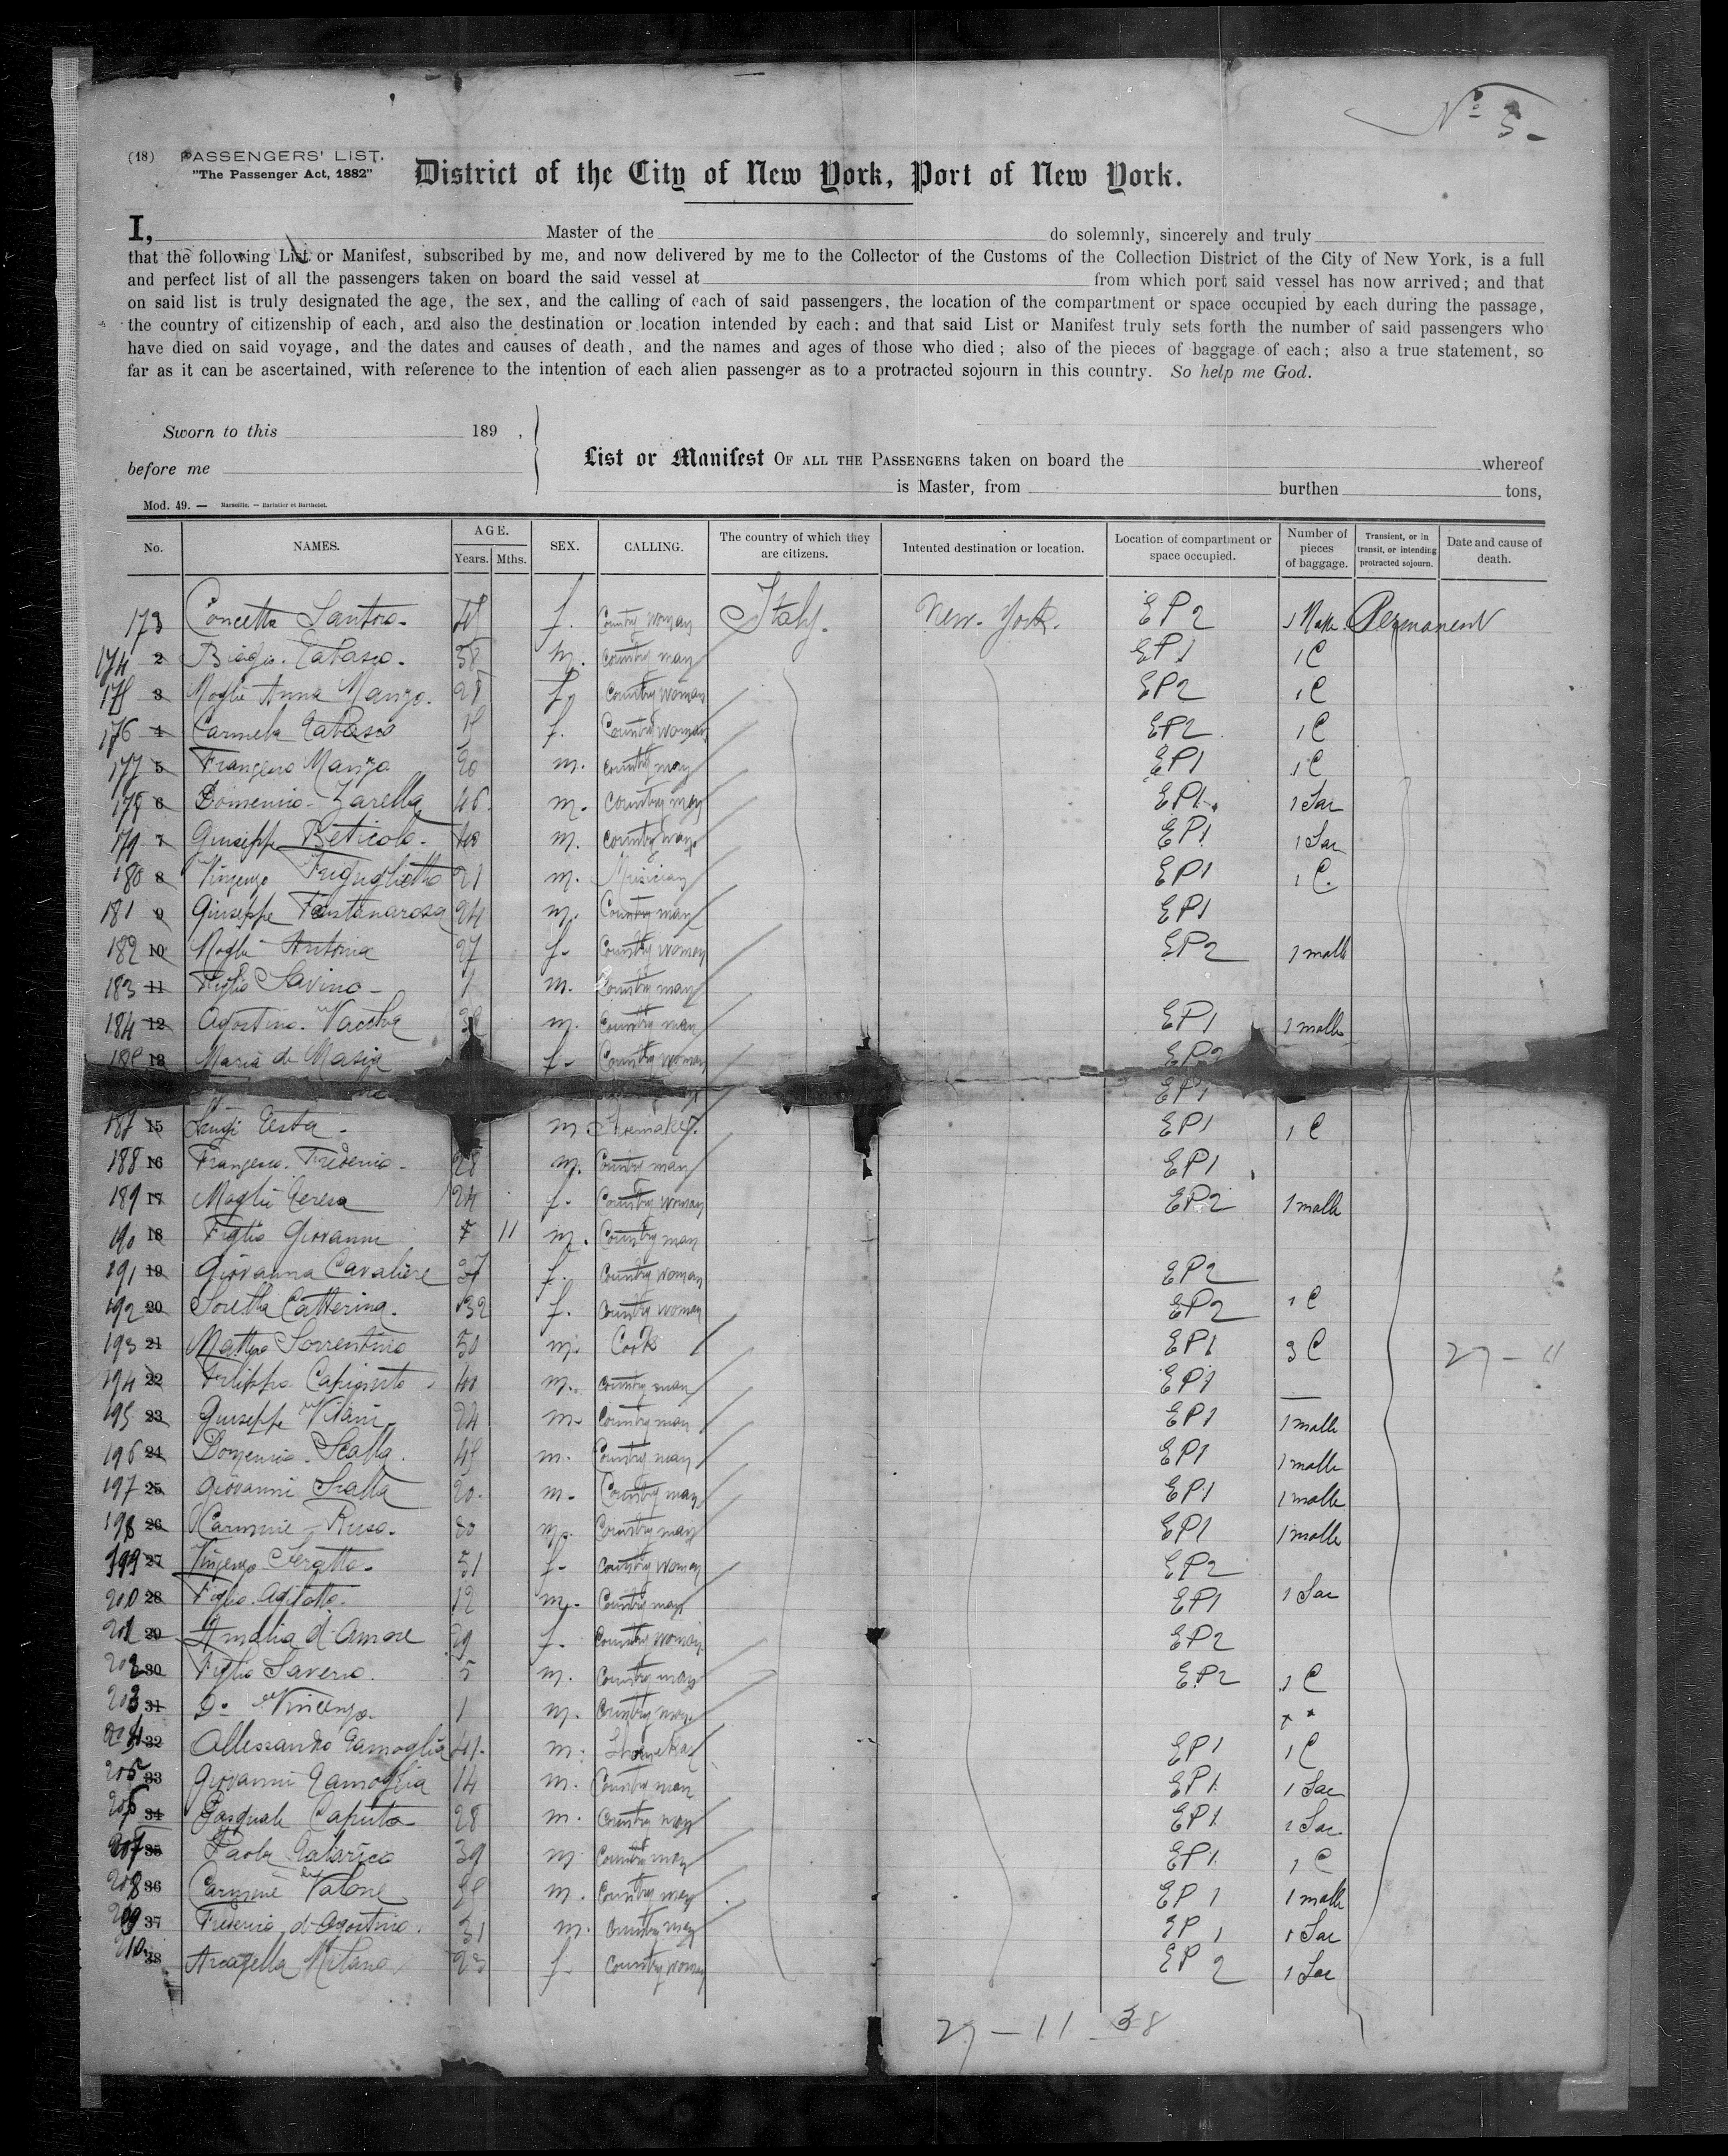 Nº 5-
(18) PASSENGERS' LIST.
"The Passenger Act, 1882"
District of the City of New York, Port of New York.
I, Master of the do solemnly, sincerely and truly
that the following List or Manifest, subscribed by me, and now delivered by me to the Collector of the Customs of the Collection District of the City of New York, is a full
and perfect list of all the passengers taken on board the said vessel at from which port said vessel has now arrived; and that
on said list is truly designated the age, the sex, and the calling of each of said passengers, the location of the compartment or space occupied by each during the passage,
the country of citizenship of each, and also the destination or location intended by each; and that said List or Manifest truly sets forth the number of said passengers who
have died on said voyage, and the dates and causes of death, and the names and ages of those who died; also of the pieces of baggage of each; also a true statement, so
far as it can be ascertained, with reference to the intention of each alien passenger as to a protracted sojourn in this country. So help me God.
Sworn to this 189 ,
before me
List or Manifest OF ALL THE PASSENGERS taken on board the whereof
is Master, from burthen tons,
Mod. 49. — Marseille. — Barlatier et Barthelet.
No. NAMES. AGE. Years. Mths. SEX. CALLING. The country of which they are citizens. Intented destination or location. Location of compartment or space occupied. Number of pieces of baggage. Transient, or in transit, or intending protracted sojourn. Date and cause of death.
173 Concetta Santoro- f. Country woman Italy. New-York. EP2 1 Malle Permanent
174 2 Biagio 38 m. Country man EP1 1 C
175 3 Moglie Anna Manzo. 28 f. Country woman EP2 1 C
176 4 Carmela f. Country woman EP2 1 C
177 5 Franzesco Manzo 20 m. Country man EP1 1 C
178 6 Domenico Zarella 46. m. Country man EP1. 1 Sac
179 7 Giuseppe Beticola- 40 m. Country man EP1 1 Sac
180 8 Vinzenzo 21 m. Musician EP1 1 C.
181 9 Giuseppe Fontanarosa 24 m. Country man EP1
182 10 Moglie Antonia 27 f- Country woman EP2 1 malle
183 11 Figlio Savino- 1 m. Country man
184 12 Agostino m. Country man EP1 1 malle
185 13 Maria de Masi f- Country woman EP2
EP1
187 15 Luigi Testa. m. EP1 1 C
188 16 Franzesco. Frederico- 28 m. Country man EP1
189 17 Moglie Teresa 24 f- Country woman EP2 1 malle
190 18 Figlio Giovanni 11 m. Country man
191 19 Giovanna Cavaliere 37 f. Country woman EP2
192 20 Catterina. 32 f. Country woman EP2 1 C
193 21 Matteo Sorrentino 50 m. Cook EP1 3 C 27-11
194 22 Filippo 40 m. Country man EP1 —
195 23 Giuseppe Vitani 24 m- Country man EP1 1 malle
196 24 Domenico Scalla. 45 m. Country man EP1 1 malle
197 25 Giovanni Scalla 20. m- Country man EP1 1 malle
198 26 Carmine Ruso. 30 m. Country man EP1 1 malle
199 27 Vinzenzo 31 f- Country woman EP2
200 28 Figlio 12 m- Country man EP1 1 Sac
201 29 Amalia d'Amore 29 f. Country woman EP2
202 30 Figlio Saverio. 5 m. Country man EP2 1 C
203 31 Dº Vincenzo. 1 m. Country man " "
204 32 Allessandro 41. m. EP1 1 C
205 33 Giovanni 14 m. Country man EP1 1 Sac
206 34 Pasquale Caputo 28 m. Country man EP1 1 Sac
207 35 Paolo 39 m. Country man EP1 1 C
208 36 Carmine m. Country man EP1 1 malle
209 37 Frederico d'Agostino. 31 m. Country man EP1 1 Sac
210 38 Milano 23 f- Country woman EP2 1 Sac
27-11-38